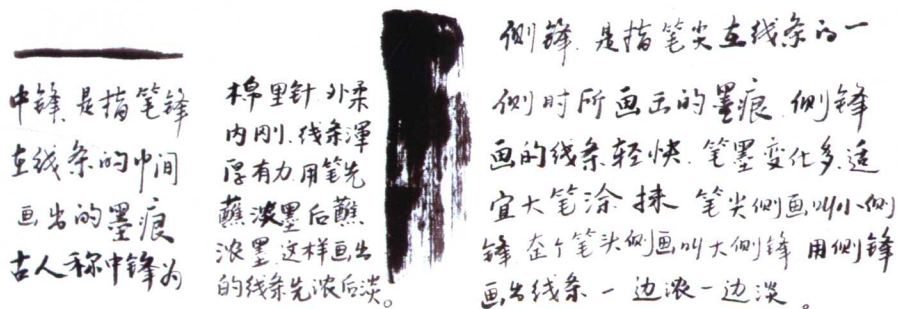 中锋.是指笔锋
在线条的中间
画出的墨痕
古人称中锋为
棉里针.外柔
内刚.线条渾
厚有力.用笔先
蘸淡墨后蘸
浓墨.这样画出
的线条先浓后淡。
侧锋.是指笔尖在线条的一
侧时所画出的墨痕.侧锋
画的线条轻快.笔墨变化多.适
宜大笔涂抹.笔尖侧画叫小侧
锋.在个笔头侧画叫大侧锋.用侧锋
画出线条一边浓一边淡。